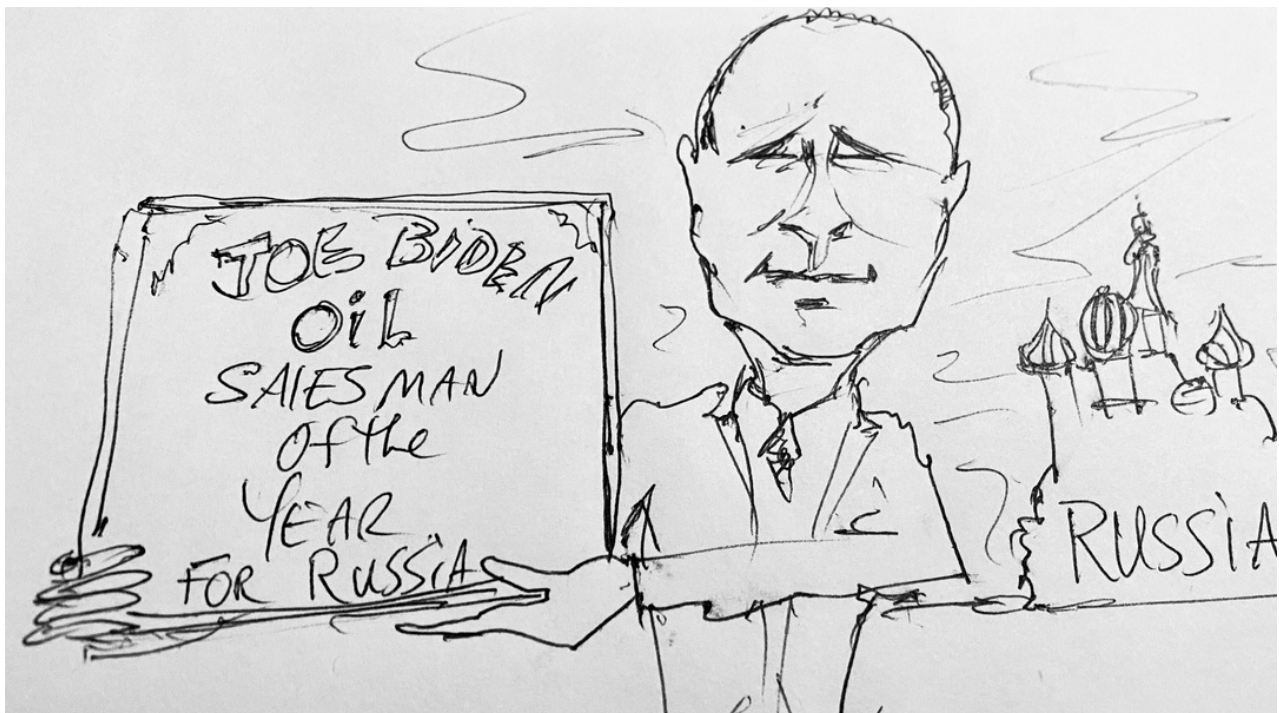 JOE BIDEN
OiL
SALESMAN
Of the
YEAR
FOR RUSSiA
RUSSiA